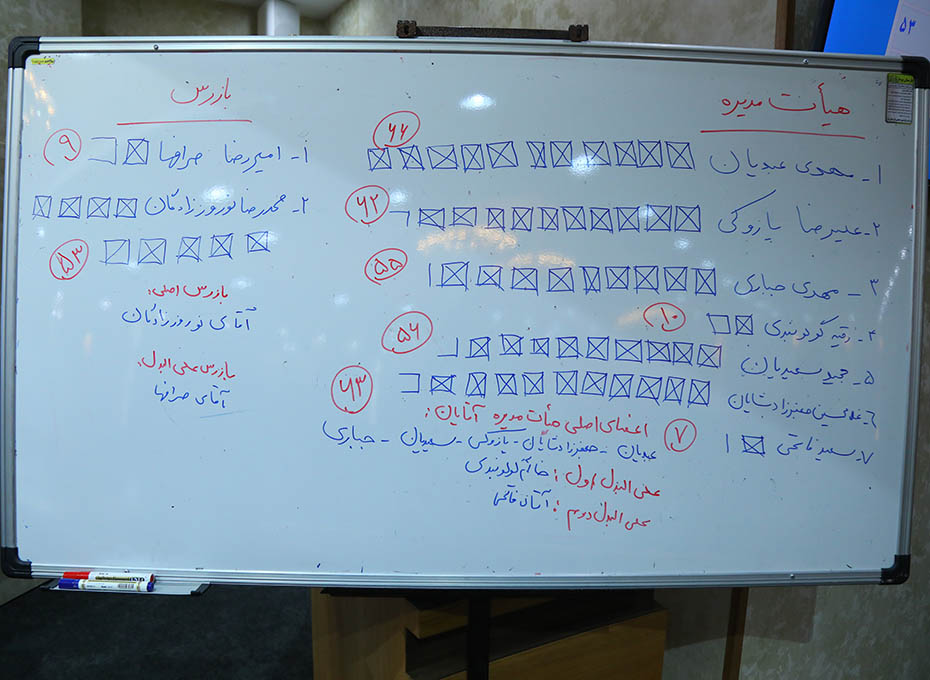 هیأت مدیره
۱- مهدی عبدیان ۶۶
۲- علیرضا یازوکی ۶۲
۳- مهدی جباری ۵۵
۴- رقیه گوگونبدی ۱۰
۵- مجید سعیدیان ۵۶
۶- غلامحسین جعفرزادشایان ۶۳
۷- سعید فاتحی ۷
اعضای اصلی هیأت مدیره آقایان:
عبدیان - جعفرزادشایان - یازوکی - سعیدیان - جباری
علی البدل اول: خانم
علی البدل دوم: آقای فاتحی
بازرس
۱- امیررضا صرافها ۹
۲- محمدرضا نوروززادگان
۵۳
بازرس اصلی:
آقای نوروززادگان
بازرس علی البدل:
آقای صرافها
۵۳